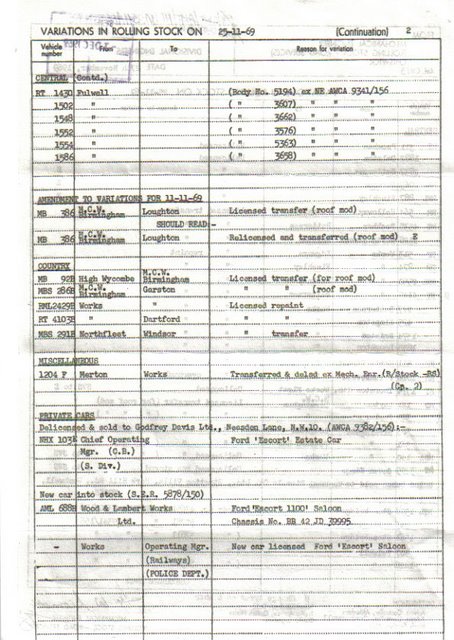 VARIATIONS IN ROLLING STOCK ON 25-11-69 (Continuation) 2
Vehicle number From To Reason for variation
CENTRAL (Contd.)
RT 1430 Fulwell (Body No. 5194) ex NE AWCA 9341/156
1502 " ( " 3607) " " "
1548 " ( " 3662) " " "
1552 " ( " 3576) " " "
1554 " ( " 5363) " " "
1586 " ( " 3658) " " "
AMENDMENT TO VARIATIONS FOR 11-11-69
MB 386 M.C.W. Birmingham Loughton Licensed transfer (roof mod)
SHOULD READ:-
MB 386 M.C.W. Birmingham Loughton Relicensed and transferred (roof mod) E
COUNTRY
MB 92B High Wycombe M.C.W. Birmingham Licensed transfer (for roof mod)
MBS 286B M.C.W. Birmingham Garston " " (roof mod)
RML2429B Works " Licensed repaint
RT 4103B " Dartford " "
MBS 291B Northfleet Windsor " transfer
MISCELLANEOUS
1204 F Merton Works Transferred & deled ex Mech. Enr.(R/Stock -RS)
(Gp. 2)
PRIVATE CARS
Delicensed & sold to Godfrey Davis Ltd., Neasden Lane, N.W.10. (AWCA 9382/156):-
NHX 103E Chief Operating Ford 'Escort' Estate Car
Mgr. (C.B.)
(S. Div.)
New car into stock (S.E.R. 5878/150)
AML 688H Wood & Lambert Works Ford 'Escort 1100' Saloon
Ltd. Chassis No. BB 42 JD 39995.
- Works Operating Mgr. New car licensed Ford 'Escort' Saloon
(Railways)
(POLICE DEPT.)